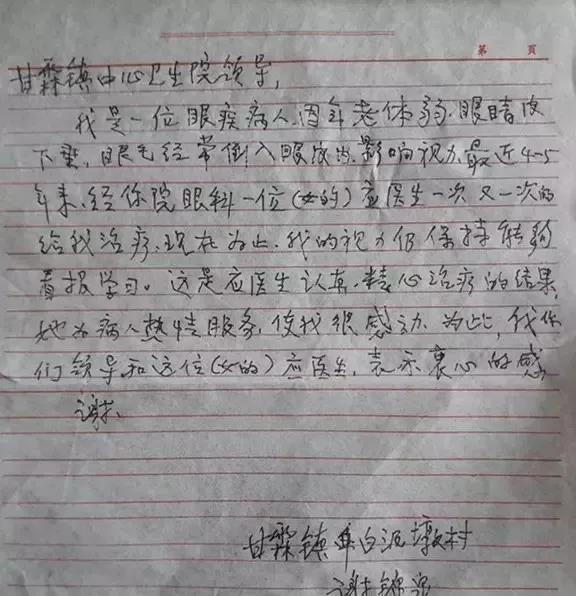 第 頁
甘霖镇中心卫生院领导,
我是一位眼疾病人,因年老体弱,眼睛皮
下垂,眼毛经常倒入眼成内,影响视力,最近4-5
年来,经你院眼科一位(女的)应医生一次又一次的
给我治疗,现在为止,我的视力仍保持能够
看报学习。这是应医生认真、精心治疗的结果,
她为病人热情服务,使我很感动,为此,我你
们领导和这位(女的)应医生,表示衷心的感
谢.
甘霖镇 白泥墩村
谢